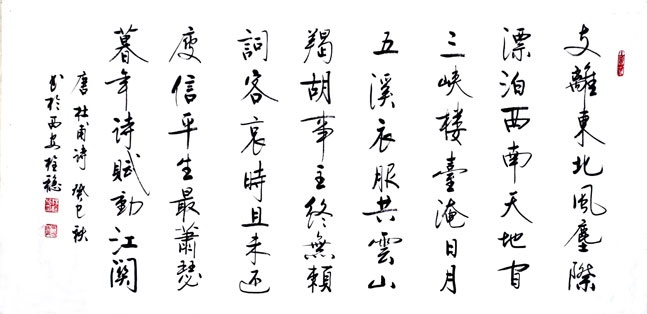 支離東北風塵際
漂泊西南天地間
三峽樓臺淹日月
五溪衣服共雲山
羯胡事主終無賴
詞客哀時且未還
庾信平生最蕭瑟
暮年詩賦動江關
唐杜甫詩癸巳秋
書於西安